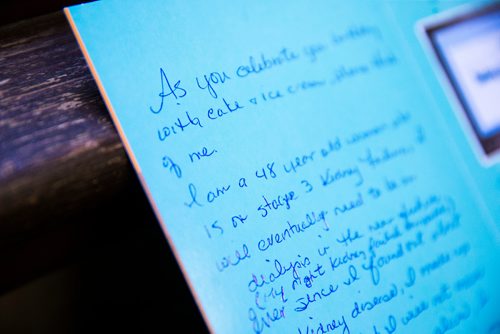 As you celebrate your birthday
with cake & ice cream, please think
of me.
I am a 48 year old woman who
is on stage 3 Kidney Failure, I
will eventually need to be on
dialysis in the near future
(My right kidney failed
Ever since I found out about
Kidney disease, I made up
I were not